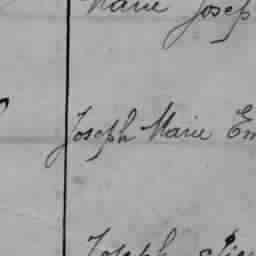 Marie Josep
Joseph Marie Em
Joseph Pie